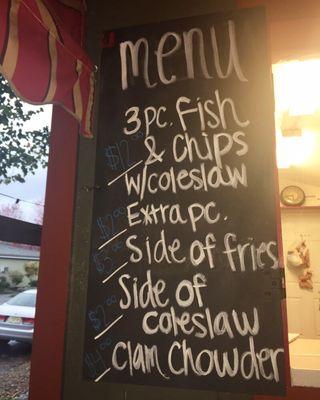 menu
3 pc. Fish
$12.00 & Chips
w/coleslaw
$2.00 Extra pc.
$3.00 Side of fries
$2.00 Side of
coleslaw
$4.00 Clam Chowder